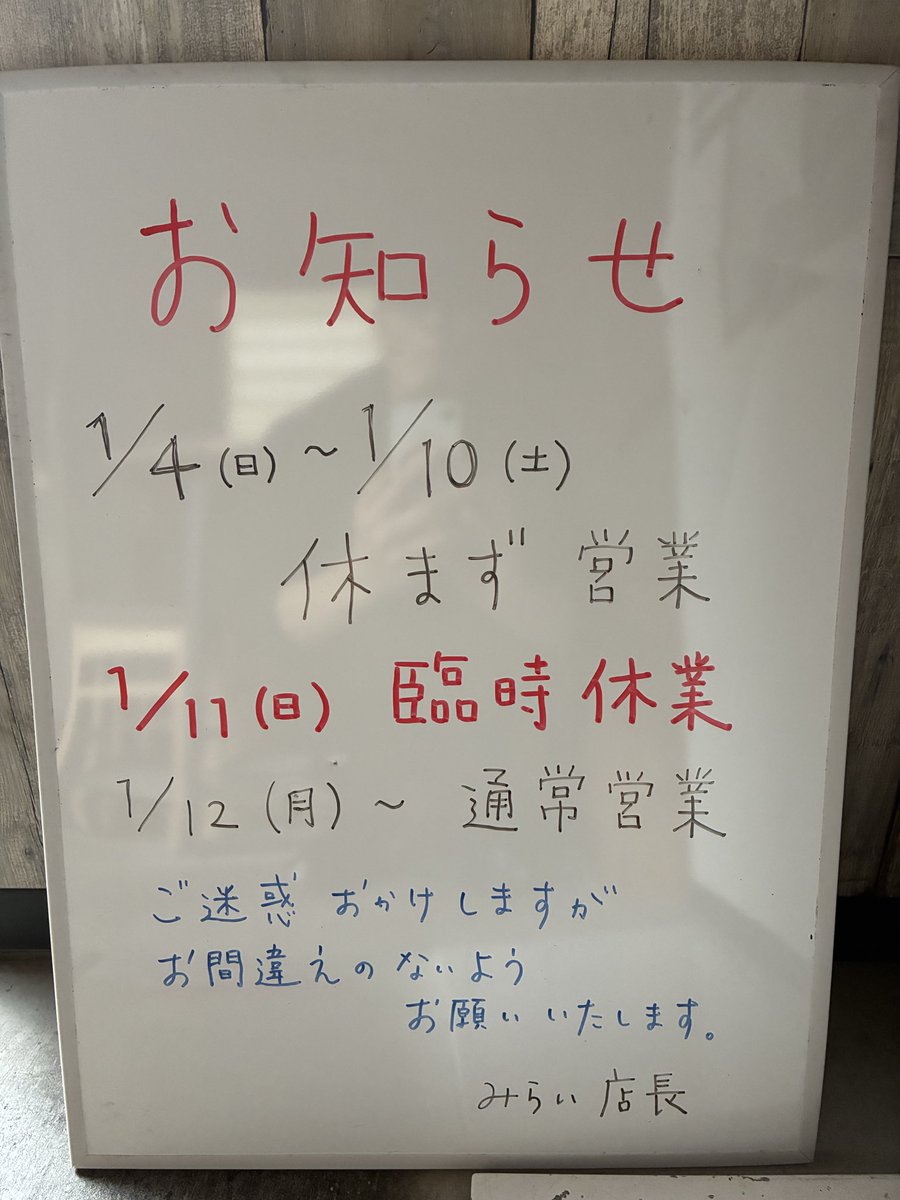 お知らせ
1/4(日)~1/10(土)
休まず営業
1/11(日) 臨時休業
1/12(月)~ 通常営業
ご迷惑おかけしますが
お間違えのないよう
お願いいたします。
みらい店長